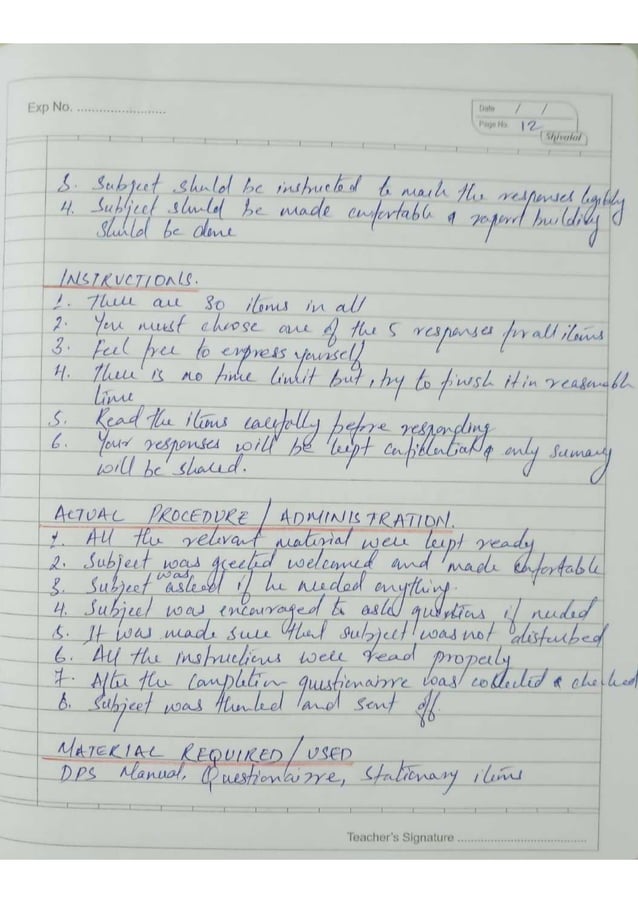 Exp No. ..........................
Date / /
Page No. 12
Shivalal
3. Subject should be instructed to mark the responses legibly
4. Subject should be made comfortable & raport building
should be done
INSTRUCTIONS.
1. There are 30 items in all
2. You must choose one of the 5 responses for all items
3. Feel free to express yourself
4. There is no time limit but, try to finish it in reasonable
time
5. Read the items carefully before responding
6. Your responses will be kept confidential & only sumary
will be shared.
ACTUAL PROCEDURE / ADMINISTRATION.
1. All the relevant material were kept ready
2. Subject was greeted welcomed and made comfortable
3. Subject was asked if he needed anything.
4. Subject was encouraged to ask questions if needed
5. It was made sure that subject was not disturbed
6. All the instructions were read properly
7. After the completion questionairre was collected & checked
8. Subject was thanked and sent off.
MATERIAL REQUIRED / USED
DPS Manual, Questionairre, Stationary items
Teacher's Signature ....................................